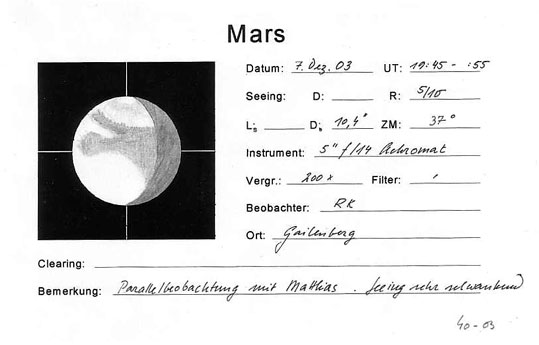 Mars
Datum: 7. Dez. 03 UT: 19:45 - :55
Seeing: D: R: 5/10
Ls: Ds: 10,4" ZM: 37°
Instrument: 5" f/14 Achromat
Vergr.: 200 x Filter: -
Beobachter: RK
Ort: Gailenberg
Clearing:
Bemerkung: Parallelbeobachtung mit Matthias. Seeing sehr schwankend
40-03